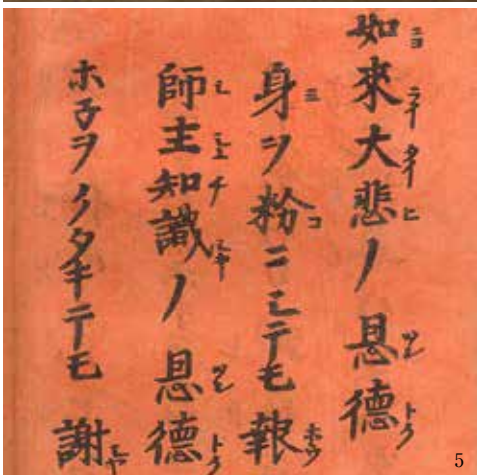 如來大悲ノ 恩德
身ヲ粉ニシテモ 報
師主知識ノ 恩德
ホ子ヲクタキテモ 謝
5